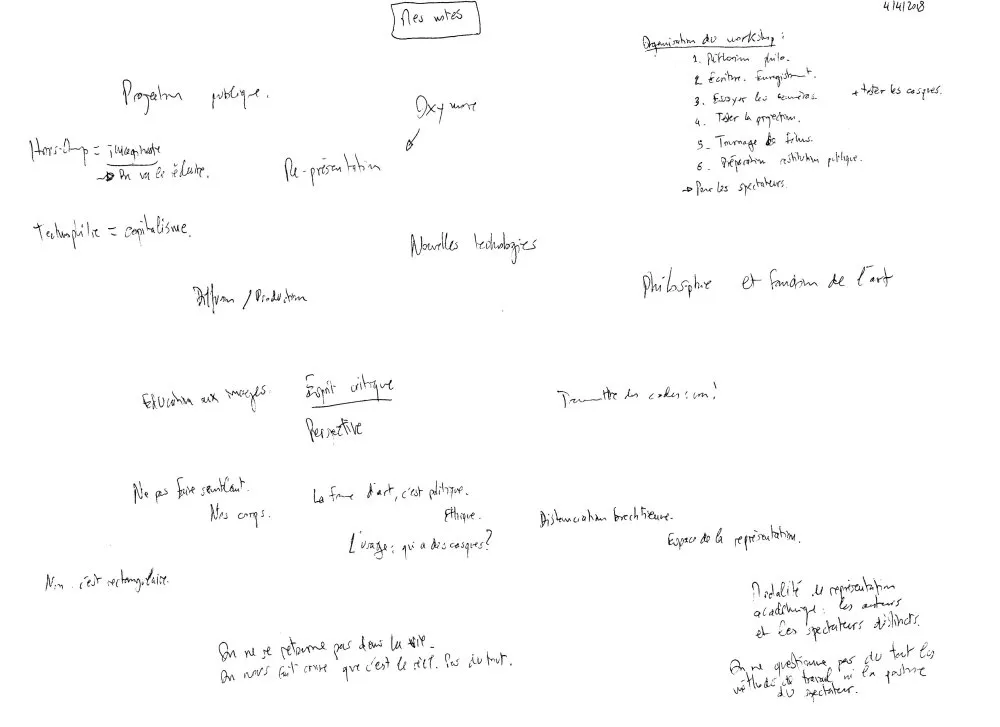 Mes notes
4/4/2018
Organisation du workshop :
1. Réflexion philo.
2. Écriture. Enregistrement.
3. Essayer les caméras. + tester les casques.
4. Tester la projection.
5. Tournage de films.
6. Préparation restitution publique.
→ Pour les spectateurs.
Projection publique.
Oxymore
Hors-Champ = imaginaire
→ On va le réduire.
Re-présentation
Technophilie = capitalisme.
Nouvelles technologies
Diffusion / Production
Philosophie et fonction de l'art
Education aux images.
Esprit critique
Perspective
Transmettre des codes : non !
Ne pas faire semblant.
Nos corps.
La forme d'art, c'est politique.
Ethique.
L'usage : qui a des casques ?
Distanciation brechtienne.
Espace de la représentation.
Non. c'est rectangulaire.
Modalité de représentation
académique : les acteurs
et les spectateurs distincts.
On ne se retourne pas dans la vie.
On nous fait croire que c'est le réel. Pas du tout.
On ne questionne pas du tout les
méthodes de travail ni la posture
du spectateur.